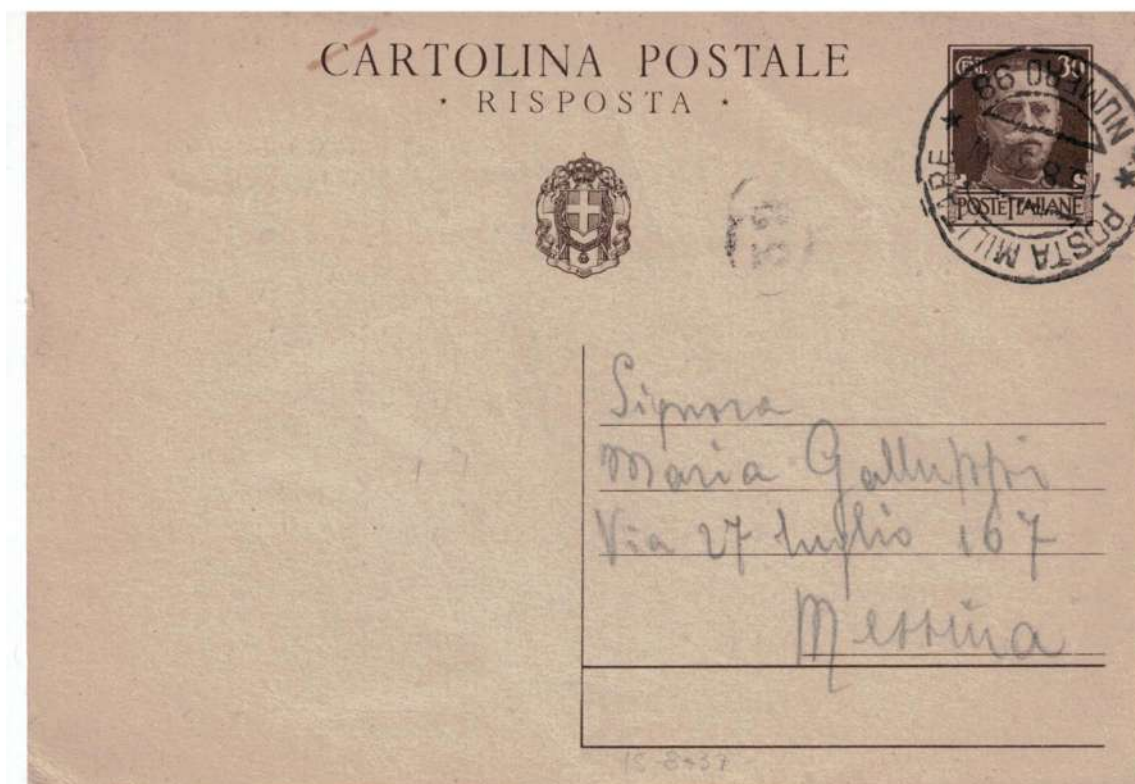 CARTOLINA POSTALE
· RISPOSTA ·
CENT. 30
POSTE ITALIANE
* POSTA MILITARE * NUMERO 98
Signora
Maria Galluppi
Via 27 luglio 167
Messina